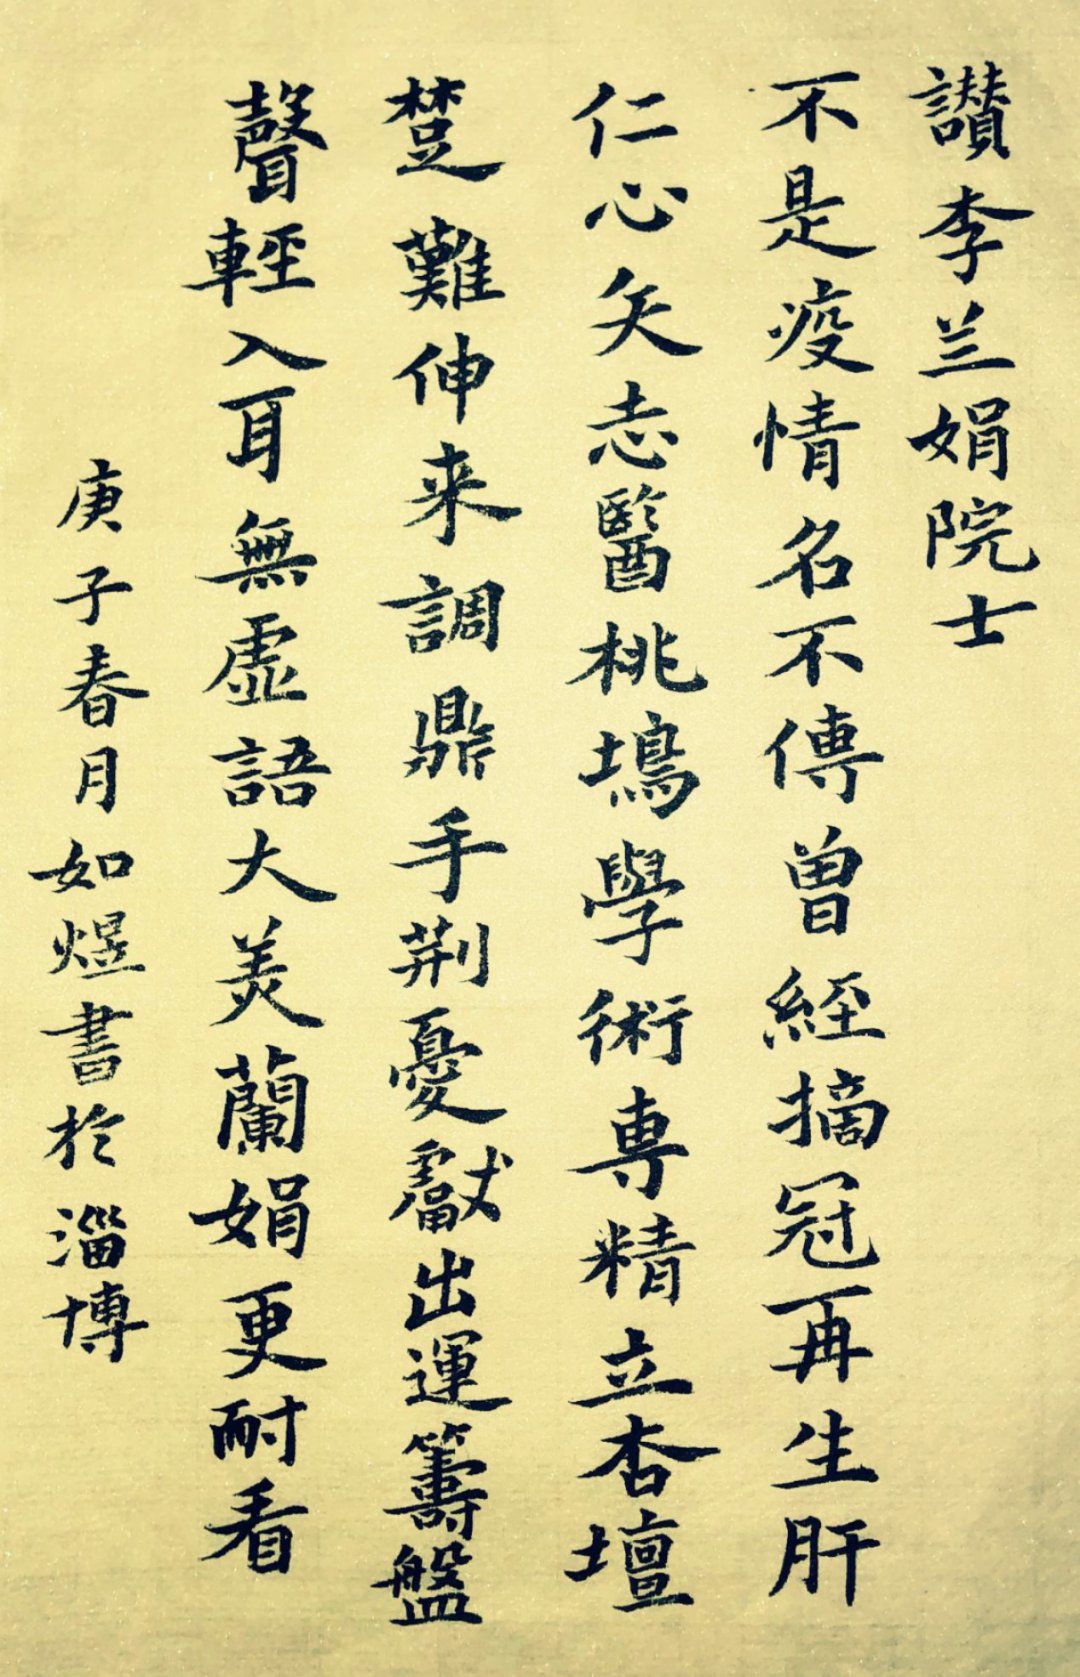 讃李兰娟院士
不是疫情名不傳曾経摘冠再生肝
仁心矢志醫桃塢學術専精立杏壇
楚難伸来調鼎手荆憂獻出運籌盤
聲輕入耳無虛語大美蘭娟更耐看
庚子春月如煜書於淄博